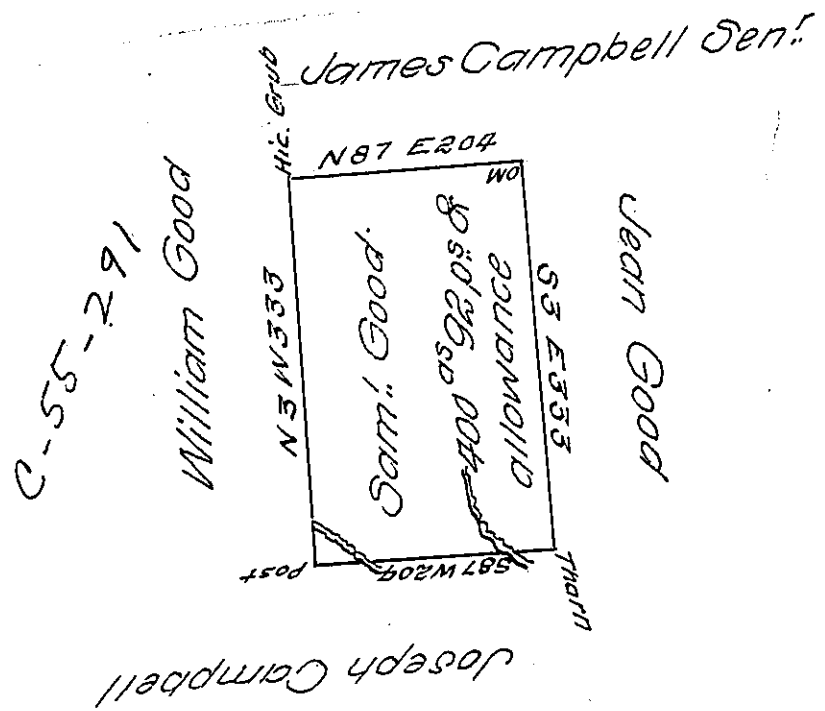 James Campbell Sen.r
Hic. Grub
N87 E204
WO
C-55-291
William Good
N3 W333
Sam.l Good.
400 as 26 ps &
allowance
S3 E333
Jean Good
Post
S87 W204
Thorn
Joseph Campbell